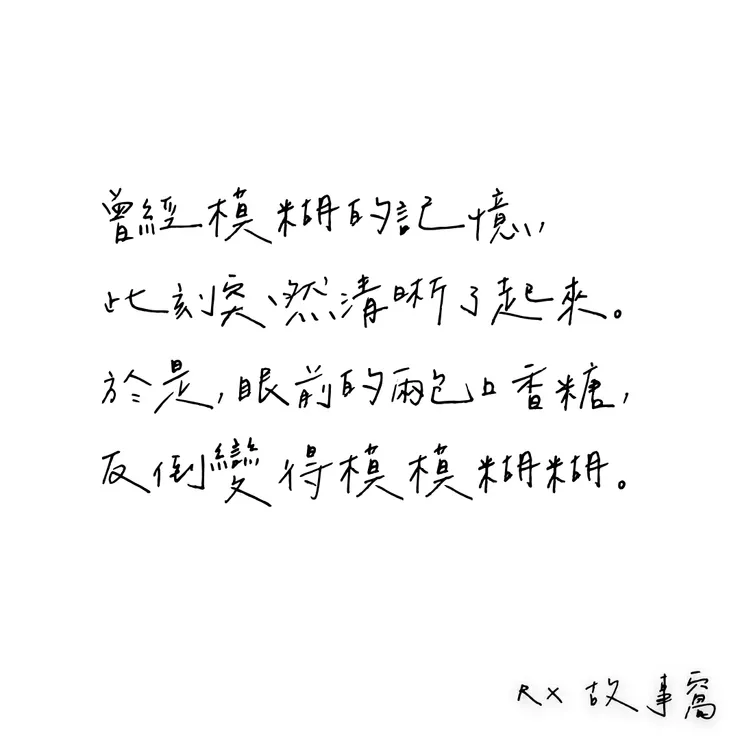 曾經模糊的記憶，
此刻突然清晰了起來。
於是，眼前的兩包口香糖，
反倒變得模模糊糊。
RX 故事窩